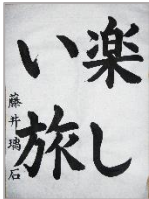 楽し
い旅
藤井瑞石